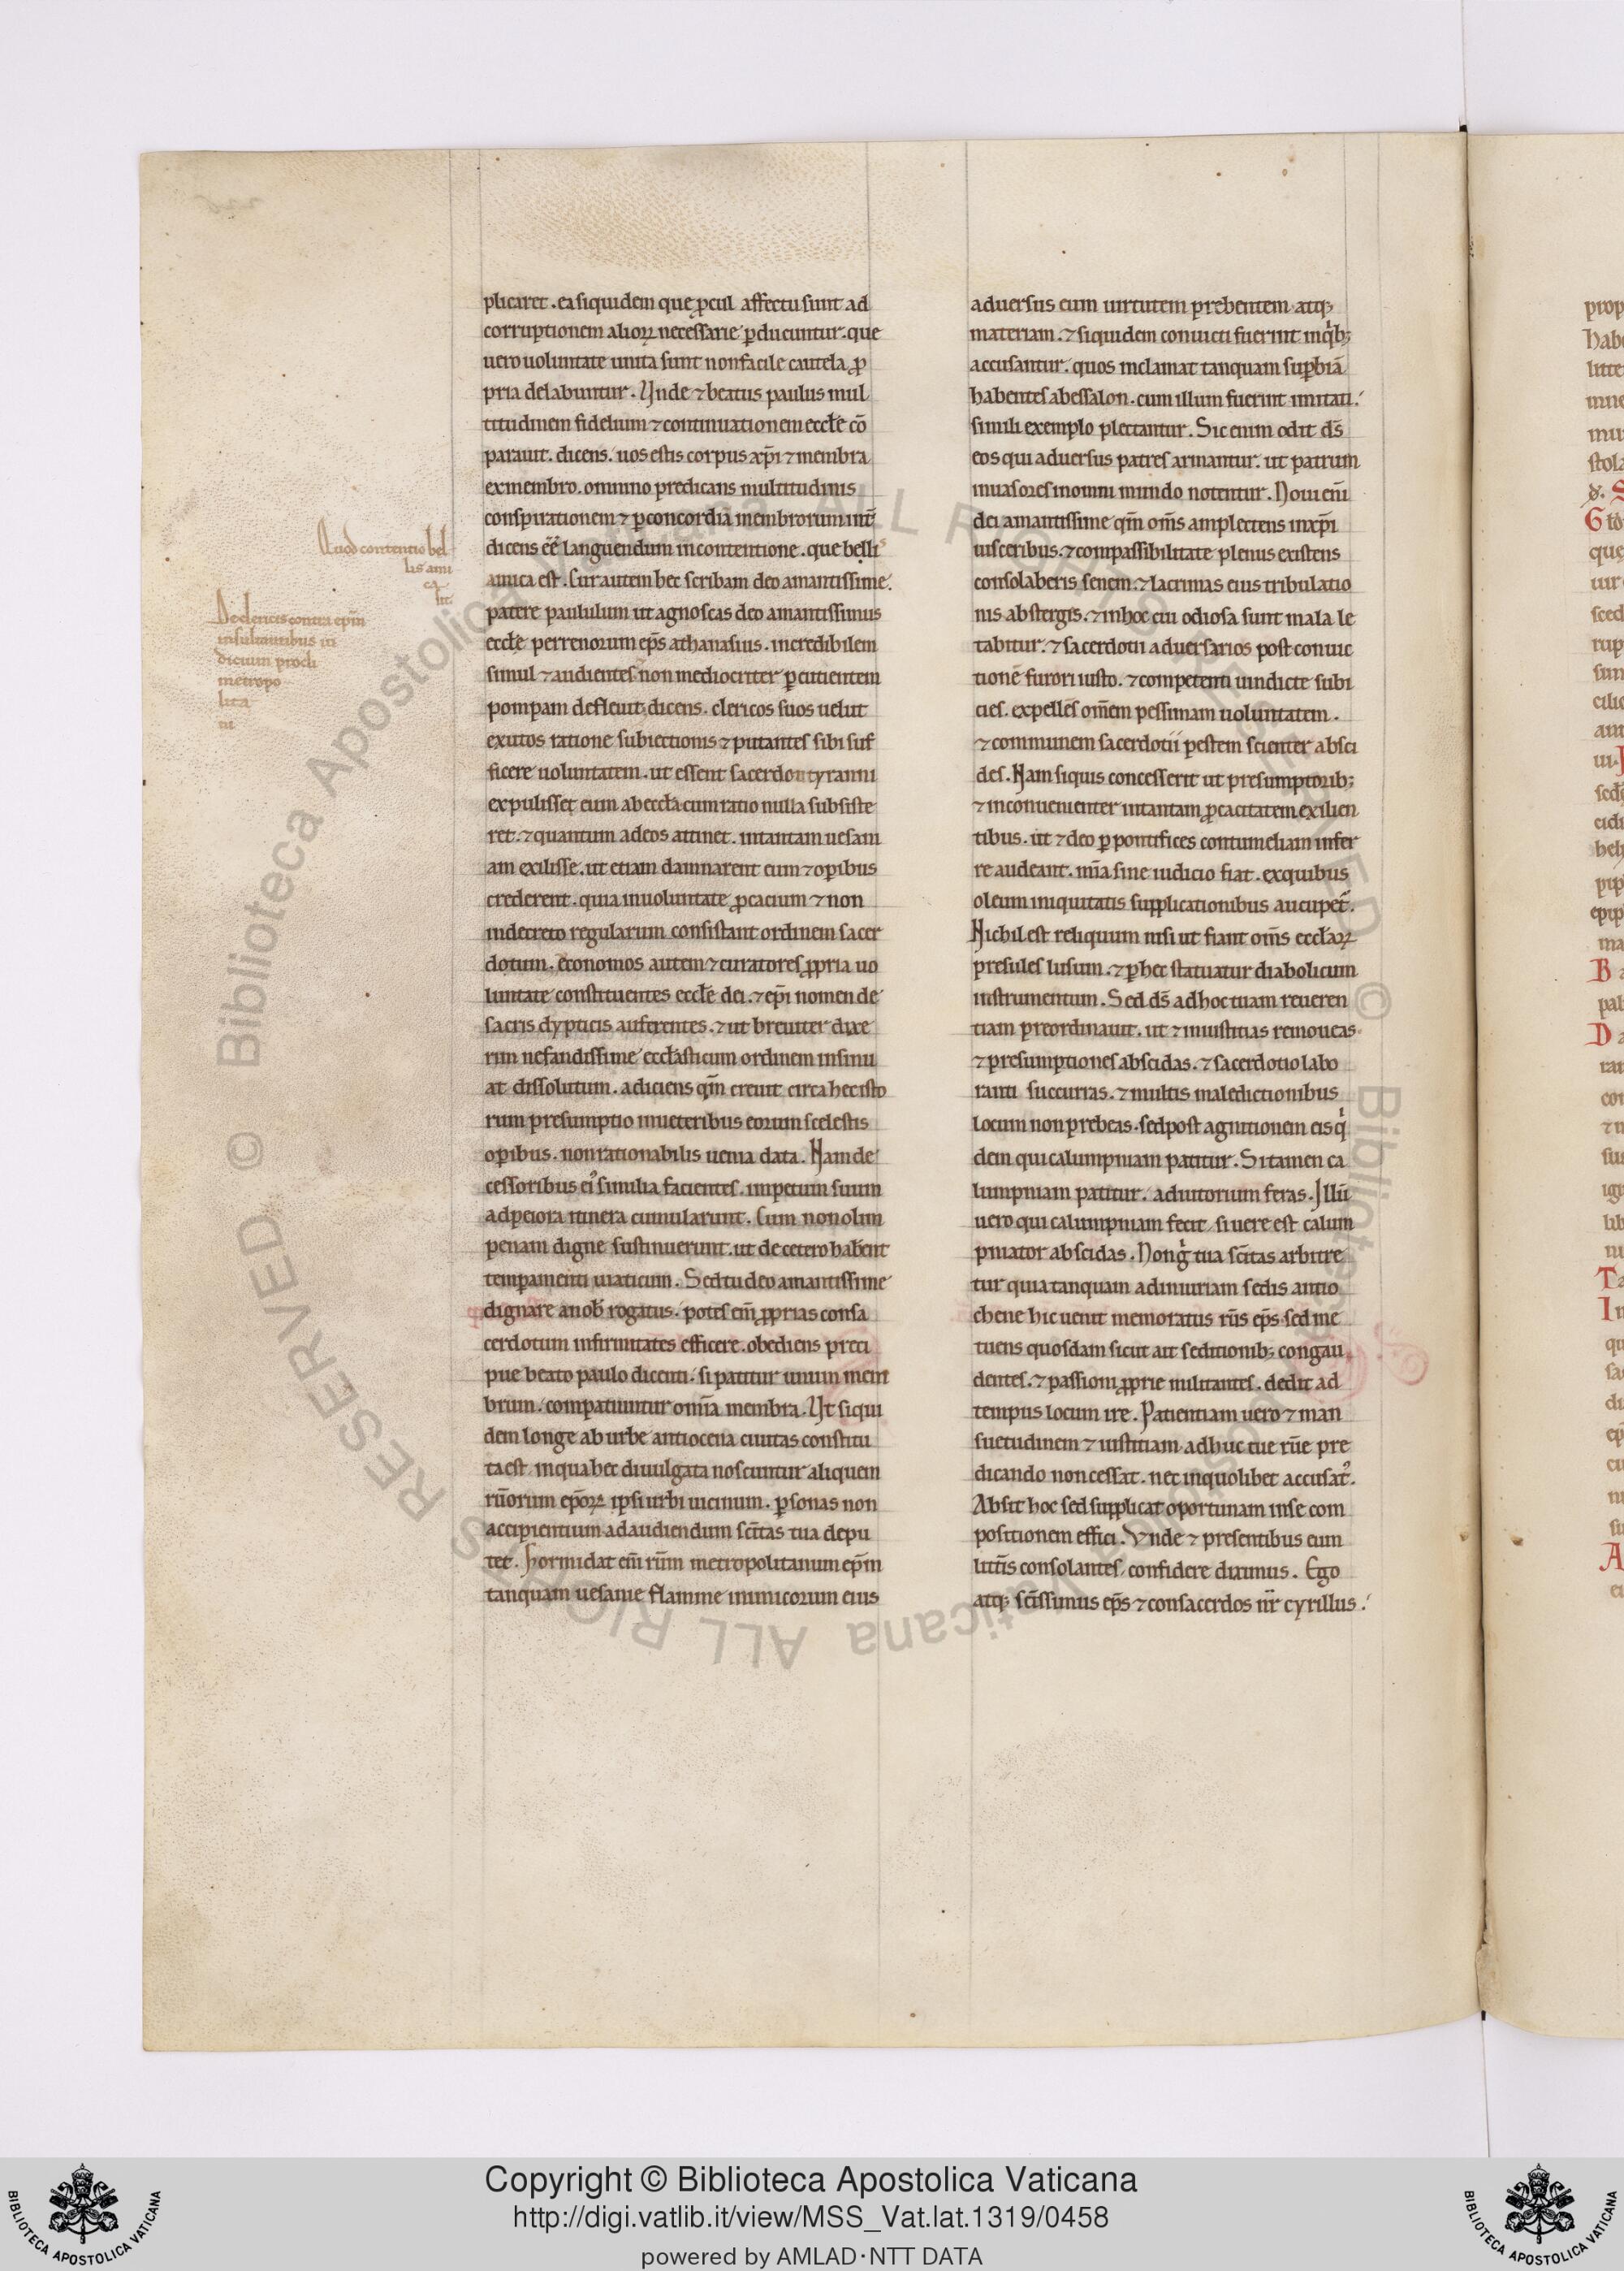 plicaret . ea siquidem que ꝓcul affectu sunt ad
corruptionem alioꝝ necessarie ꝑducuntur . que
uero uoluntate unita sunt non facile cautela ꝓ
pria delabuntur . Unde ⁊ beatus paulus mul
titudinem fidelium ⁊ continuationem eccłe cō
parauit . dicens . uos estis corpus xp̄i ⁊ membra
ex membro . omnino predicans multitudinis
conspirationem ⁊ ꝑ concordiā membrorum int̄
dicens eē languendum in contentione . que belli
amica est . Cur autem hec scribam deo amantissime .
Quod contentio bel
lis ami
ca
sit
patere paululum ut agnoscas deo amantissimus
eccłe perrenorum ep̄s athanasius . incredibilem
simul ⁊ audientes non mediocriter ꝑcutientem
pompam defleuit dicens . clericos suos uelut
exutos ratione subiectionis ⁊ putantes sibi suf
De clericis contra ep̄m
insultantibus iu
dicium procli
metropo
lita
ni
ficere uoluntatem . ut essent sacerdoti tyranni
expulisset eum ab eccła cum ratio nulla subsiste
ret . ⁊ quantum ad eos attinet . in tantam uesani
am exilisse . ut etiam damnarent eum ⁊ opibus
crederent . quia in uoluntate ꝓcacium ⁊ non
in decreto regularum consistant ordinem sacer
dotum . economos autem ⁊ curatores ꝓpria uo
luntate constituentes eccłe dei . ⁊ ep̄i nomen de
sacris dypticis auferentes . ⁊ ut breuiter dixe
rim nefandissime eccłasticum ordinem insinu
at dissolutum . adiciens qm̄ creuit circa hec isto
rum presumptio in ueteribus eorum scelestis
opibus . non rationabilis uenia data . Nam de
cessoribus ei᾽ similia facientes . impetum suum
ad peiora itinera cumularunt . Cum non olim
penam digne sustinuerunt . ut de cetero haberent
tempamenti uiaticum . Sed tu deo amantissime
dignare a nob̄ rogatus . potes em̄ ꝓprias consa
cerdotum infirmitates efficere . obediens preci
pue beato paulo dicenti . si patitur unum mem
brum . compatiuntur om̄ia membra . Ut siqui
dem longe ab urbe antiocena ciuitas constitu
ta est in qua hec diuulgata noscuntur aliquem
rūorum ep̄oꝝ ipsi urbi uicinum . ꝑsonas non
accipientium ad audiendum sc̄itas tua depu
tet . Formidat em̄ rūm metropolitanum ep̄m
tanquam uesanie flamme inimicorum eius
aduersus eum uirtutem prebentem atq;
materiam . ⁊ siquidem conuicti fuerint in qͥb;
accusantur . quos inclamat tanquam supbiā
habentes abessalon . cum illum fuerint imitati .
simili exemplo plectantur . Sic enim odit ds̄
eos qui aduersus patres armantur . ut patrum
inuasores in omni mundo notentur . Noui em̄
dei amantissime qm̄ om̄s amplectens in xp̄i
uisceribus . ⁊ compassibilitate plenus existens
consolaberis senem . ⁊ lacrimas eius tribulatio
nis abstergis . ⁊ in hoc cui odiosa sunt mala le
tabitur . ⁊ sacerdotii aduersarios post conuic
tionē furori iusto . ⁊ competenti uindicte subi
cies . expelles om̄em pessimam uoluntatem .
⁊ communem sacerdotii pestem scienter absci
des . Nam siquis concesserit ut presumptorib;
⁊ inconuenienter in tantam ꝓcacitatem exilien
tibus . ut ⁊ deo ꝑ pontifices contumeliam infer
re audeant . m̄ia sine iudicio fiat . ex quibus
oleum iniquitatis supplicationibus aucupet̄ .
Nichil est reliquum nisi ut fiant om̄s eccłaꝝ
presules lusum . ⁊ ꝑ hec statuatur diabolicum
instrumentum . Sed ds̄ ad hoc tuam reueren
tiam preordinauit . ut ⁊ iniustitias remoueas .
⁊ presumptiones abscidas . ⁊ sacerdotio labo
ranti succurras . ⁊ multis maledictionibus
locum non prebeas . sed post agnitionem eis qͥ
dem qui calumpniam patitur . Si tamen ca
lumpniam patitur . adiutorium feras . Illū
uero qui calumpniam fecit si uere est calum
pniator abscidas . Non gͥ tua sc̄itas arbitre
tur quia tanquam ad iniuriam sedis antio
chene hic uenit memoratus rūs ep̄s . sed me
tuens quosdam sicut ait seditionib; congau
dentes . ⁊ passioni ꝓprie militantes . dedit ad
tempus locum ire . Patientiam uero ⁊ man
suetudinem ⁊ iustitiam adhuc tue rūe pre
dicando non cessat . nec in quolibet accusat᾽ .
Absit hoc sed supplicat oportunam in se com
positionem effici . Unde ⁊ presentibus eum
litt̄is consolantes confidere diximus . Ego
atq; sc̄issimus ep̄s ⁊ consacerdos nr̄ cyrillus .
Copyright © Biblioteca Apostolica Vaticana
http://digi.vatlib.it/view/MSS_Vat.lat.1319/0458
powered by AMLAD·NTT DATA
BIBLIOTECA APOSTOLICA VATICANA
BIBLIOTECA APOSTOLICA VATICANA